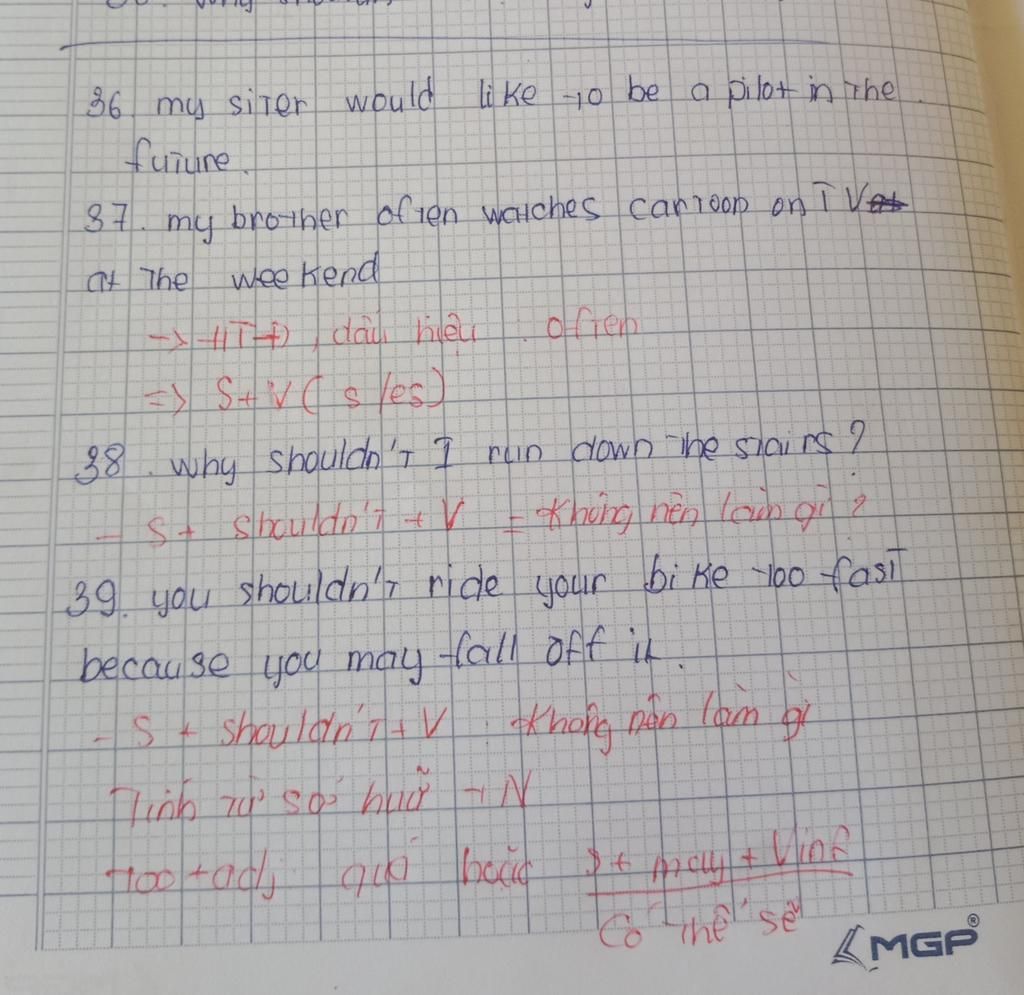 36. my siter would like to be a pilot in the
future.
37. my brother often watches cartoon on TV
at the weekend
-> HTĐ, dấu hiệu : often
=> S + V ( s /es)
38. Why shouldn't I run down the stairs ?
- S + shouldn't + V = Không nên làm gì ?
39. you shouldn't ride your bike too fast
because you may fall off it.
- S + shouldn't + V : Không nên làm gì
Tính từ sở hữu + N
too + adj quá S + may + Vinf
Có thể sẽ
MGP®